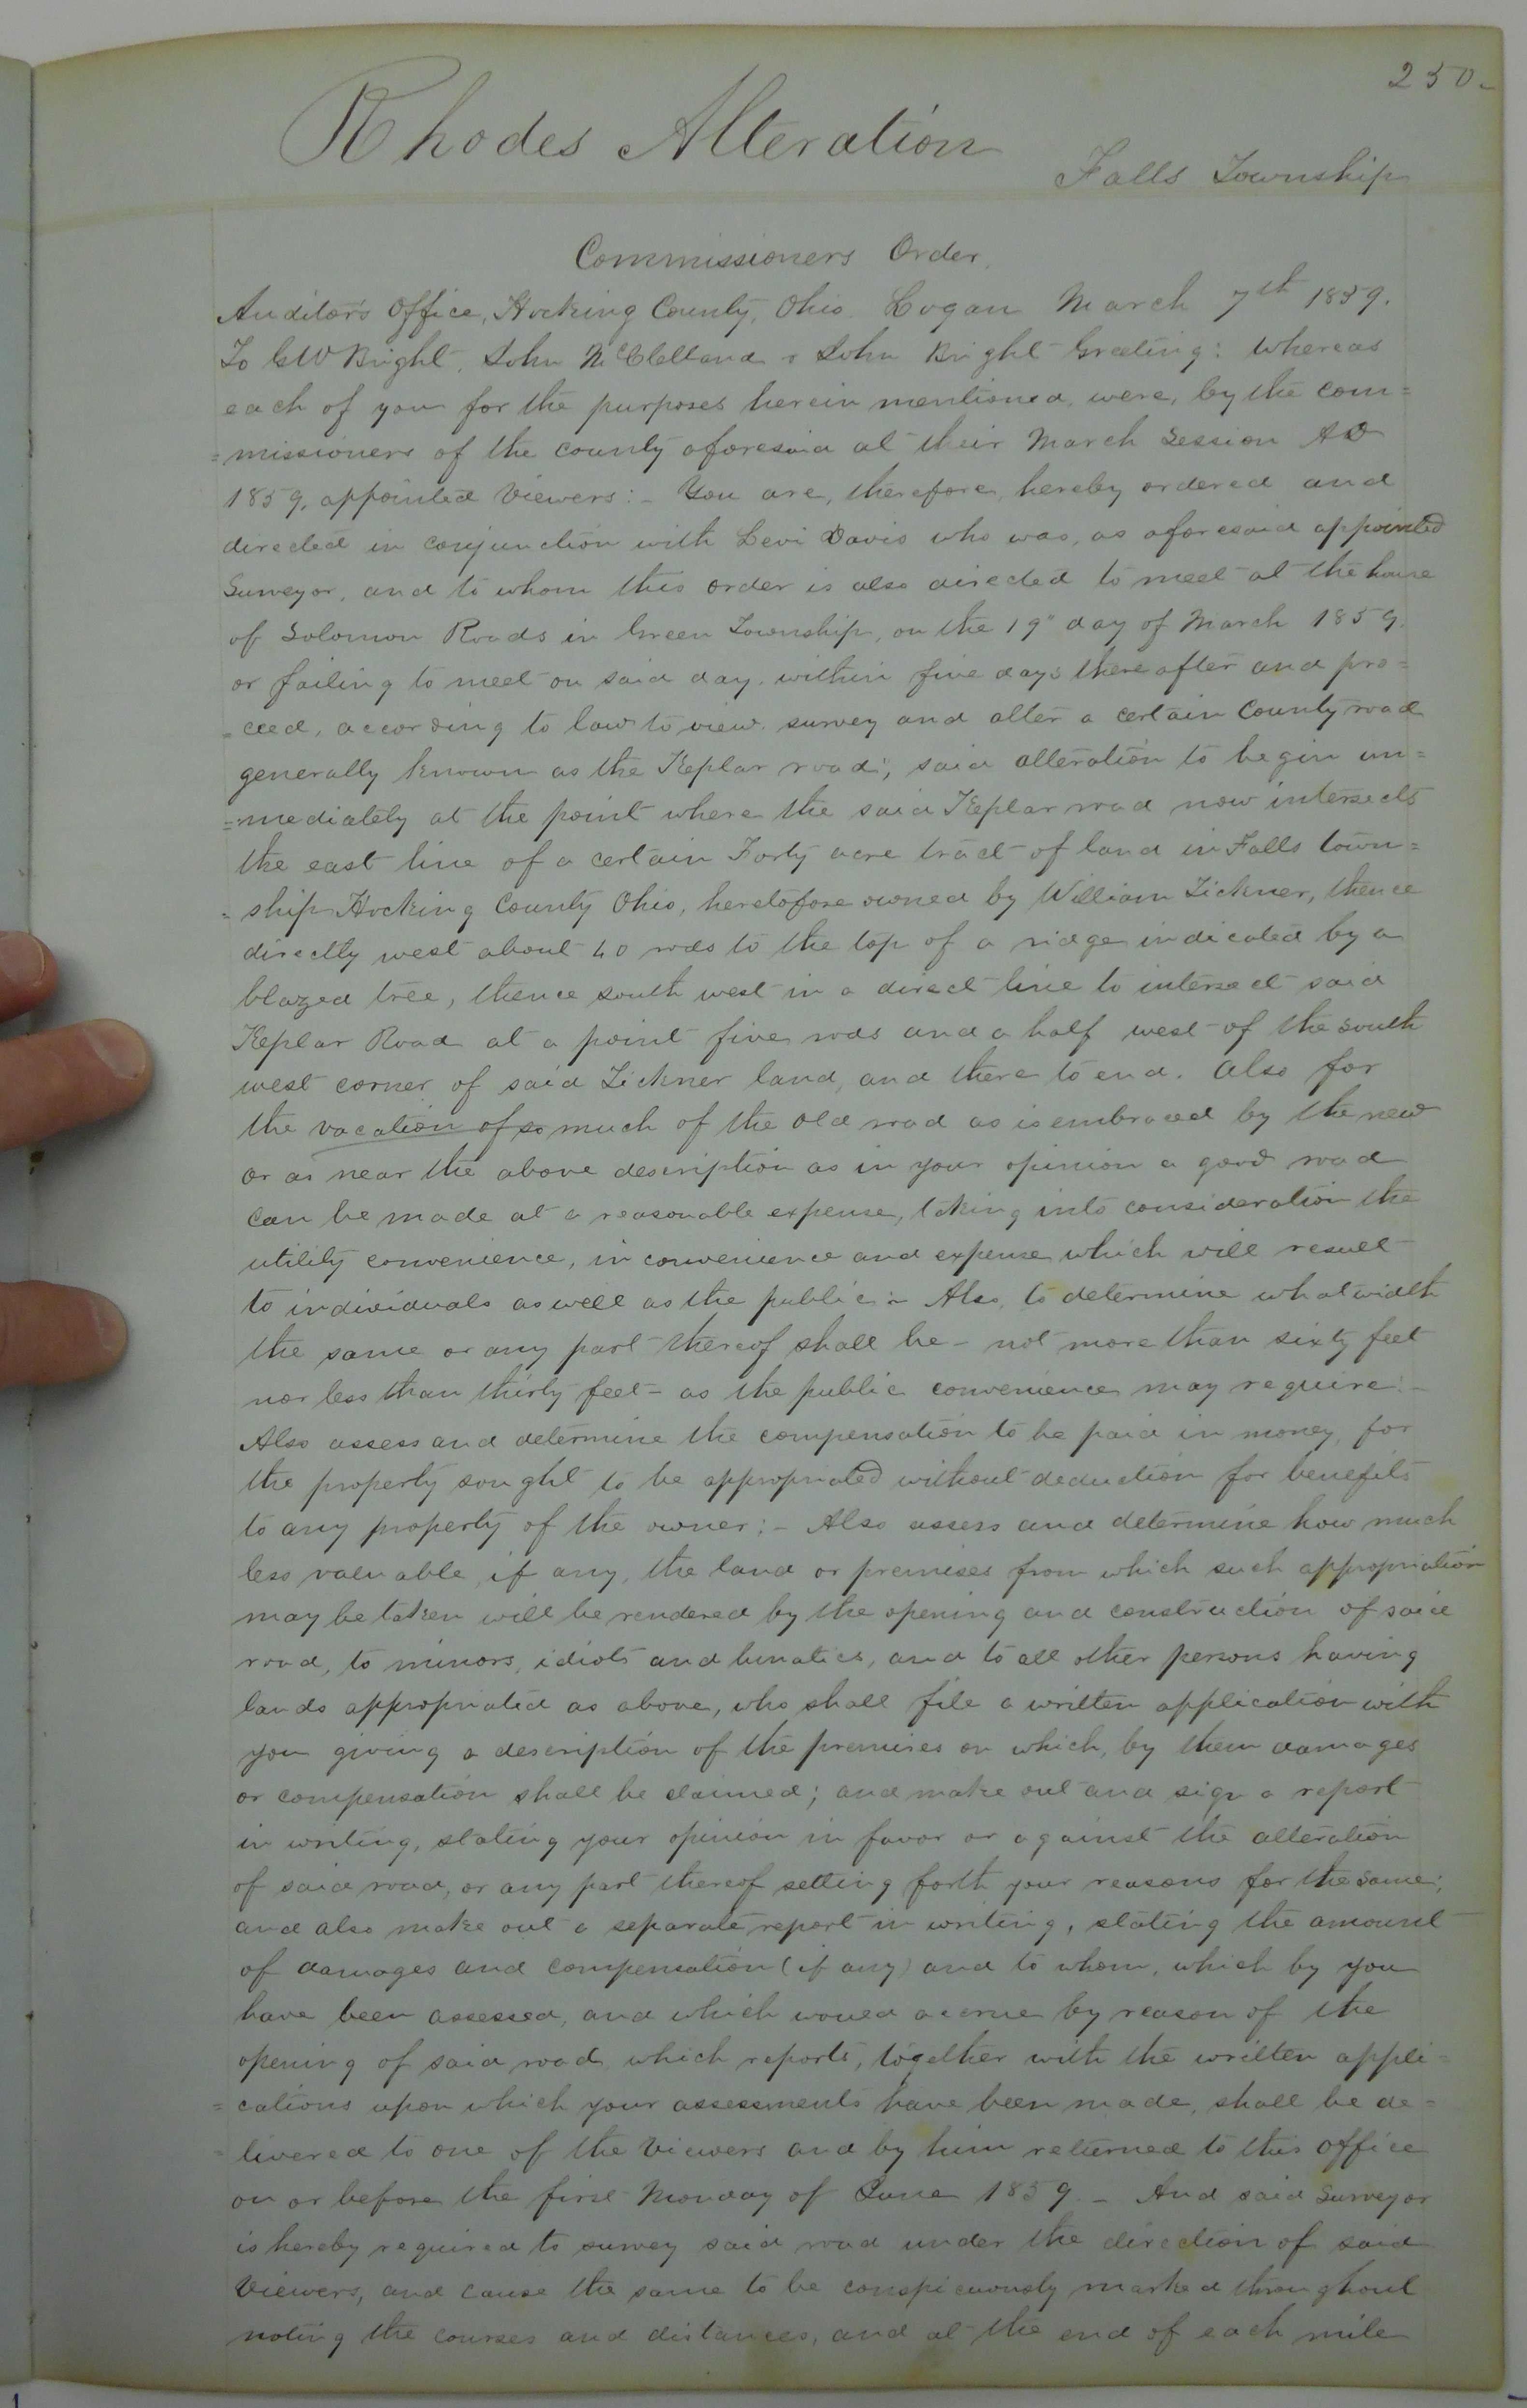 250-
Rhodes Alteration
Falls Township
Commissioners Order.
Auditor's Office, Hocking County, Ohio. Logan March 7th 1859.
To G W Bright, John McClelland & John Bright Greeting: Whereas
each of you for the purposes herein mentioned, were, by the com=
=missioners of the county aforesaid at their March Session AD
1859, appointed Viewers:- You are, therefore, hereby ordered and
directed in conjunction with Levi Davis who was, as aforesaid appointed
Surveyor, and to whom this order is also directed to meet at the house
of Solomon Roads in Green Township, on the 19" day of March 1859.
or failing to meet on said day, within five days there after and pro=
=ceed, according to law to view, survey and alter a certain County road
generally known as the Keplar road; said alteration to begin im=
=mediately at the point where the said Keplar road now intersects
the east line of a certain Forty acre tract of land in Falls town=
=ship Hocking County Ohio, heretofore owned by William Tickner, thence
directly west about 40 rods to the top of a ridge indicated by a
blazed tree, thence south west in a direct line to intersect said
Keplar Road at a point five rods and a half west of the south
west corner of said Tickner land, and there to end. Also for
the vacation of so much of the old road as is embraced by the new
or as near the above description as in your opinion a good road
can be made at a reasonable expense, taking into consideration the
utility convenience, inconvenience and expense which will result
to individuals as well as the public:- Also, to determine what width
the same or any part thereof shall be - not more than sixty feet
nor less than thirty feet - as the public convenience may require:-
Also assess and determine the compensation to be paid in money, for
the property sought to be appropriated without deduction for benefits
to any property of the owner:- Also assess and determine how much
less valuable, if any, the land or premises from which such appropriation
may be taken will be rendered by the opening and construction of said
road, to minors, idiots and lunatics, and to all other persons having
lands appropriated as above, who shall file a written application with
you giving a description of the premises on which, by them damages
or compensation shall be claimed; and make out and sign a report
in writing, stating your opinion in favor or against the alteration
of said road, or any part thereof setting forth your reasons for the same;
and also make out a separate report in writing, stating the amount
of damages and compensation (if any) and to whom, which by you
have been assessed, and which would accrue by reason of the
opening of said road, which reports, together with the written appli=
=cations upon which your assessments have been made, shall be de=
=livered to one of the Viewers and by him returned to this office
on or before the first Monday of June 1859. - And said Surveyor
is hereby required to survey said road under the direction of said
Viewers, and cause the same to be conspicuously marked throughout
noting the courses and distances, and at the end of each mile